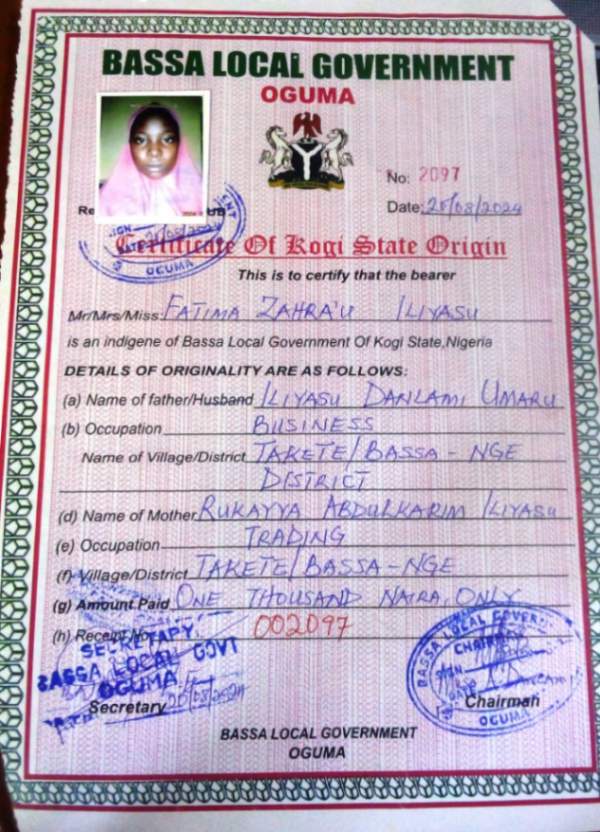 BASSA LOCAL GOVERNMENT
OGUMA
No: 2097
Date: 20/08/2024
Certificate Of Kogi State Origin
This is to certify that the bearer
Mr/Mrs/Miss: FATIMA ZAHRA'U ILIYASU
is an indigene of Bassa Local Government Of Kogi State,Nigeria
DETAILS OF ORIGINALITY ARE AS FOLLOWS:
(a) Name of father/Husband ILIYASU DANLAMI UMARU
(b) Occupation BUSINESS
Name of Village/District TAKETE/BASSA-NGE
DISTRICT
(d) Name of Mother RUKAYYA ABDULKARIM ILIYASU
(e) Occupation TRADING
(f) Village/District TAKETE/BASSA-NGE
(g) Amount Paid ONE THOUSAND NAIRA ONLY
(h) Receipt No. 002097
SECRETARY
BASSA LOCAL GOVT
OGUMA
Secretary 20/08/2024
BASSA LOCAL GOVERN
CHAIRMAN
SIGN
DATE
OGUMA
Chairman
BASSA LOCAL GOVERNMENT
OGUMA